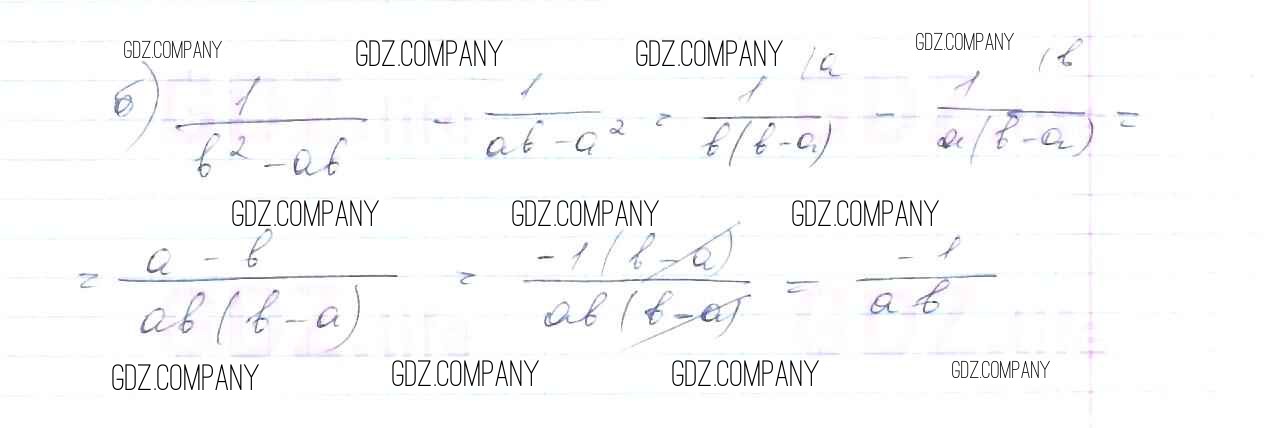 GDZ.COMPANY GDZ.COMPANY GDZ.COMPANY GDZ.COMPANY
б) 1/(b² - ab) - 1/(ab - a²) = 1/(b(b-a)) (a - 1/(a(b-a)) (b =
GDZ.COMPANY GDZ.COMPANY GDZ.COMPANY
= (a - b)/(ab(b-a)) = -1(b-a)/(ab(b-a)) = -1/(ab)
GDZ.COMPANY GDZ.COMPANY GDZ.COMPANY GDZ.COMPANY